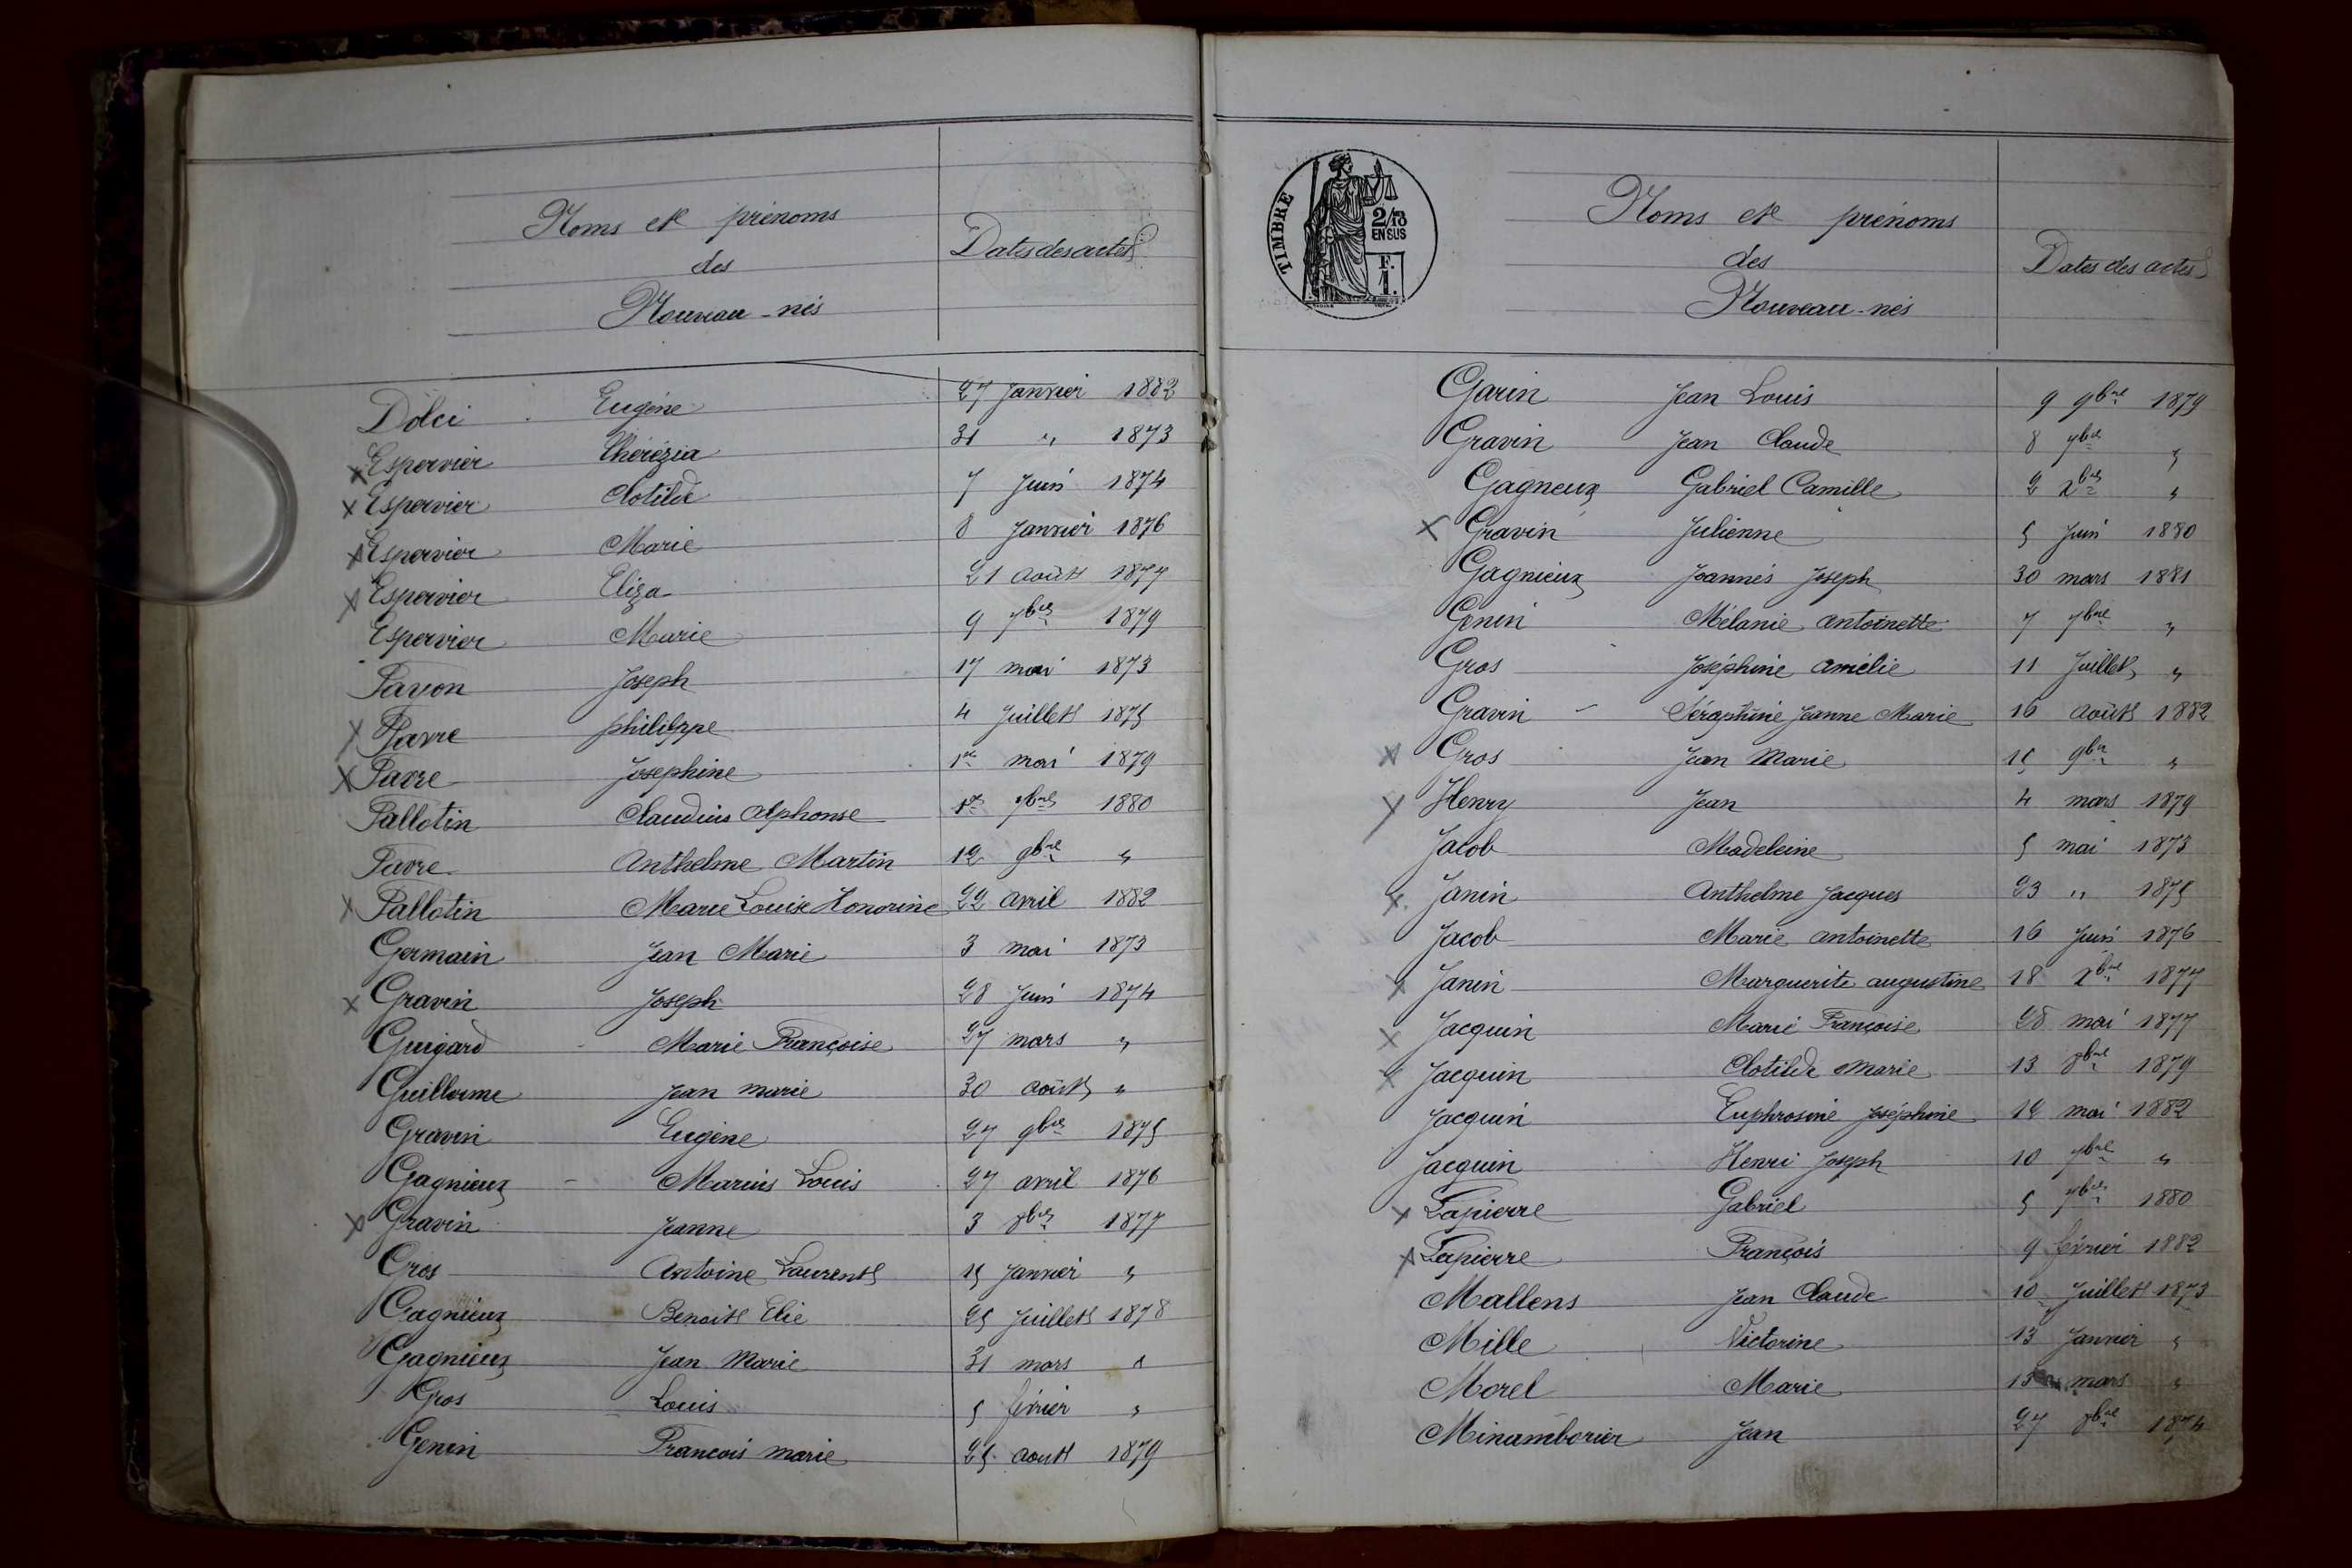 Noms et prénoms
des
Nouveau-nés
Dates des actes
Dolci Eugène 27 Janvier 1882
x Espervier Thérézia 31 " 1873
x Espervier Clotilde 7 Juin 1874
x Espervier Marie 8 Janvier 1876
x Espervier Eliza 21 Août 1877
Espervier Marie 9 7bre 1879
Fayon Joseph 17 mai 1873
x Favre philippe 4 Juillet 1875
x Favre Josephine 1er mai 1879
Fallotin Claudius Alphonse 1er 7bre 1880
Favre Anthelme Martin 12 9bre "
x Fallotin Marie Louise Honorine 22 avril 1882
Germain Jean Marie 3 mai 1873
x Gravin Joseph 28 Juin 1874
Guigard Marie Françoise 27 mars "
Guillerme Jean marie 30 août "
Gravin Eugène 27 9bre 1875
Gagnieux Marius Louis 27 avril 1876
x Gravin Jeanne 3 8bre 1877
Gros Antoine Laurent 15 Janvier "
Gagnieux Benoit Elie 25 Juillet 1878
Gagnieux Jean Marie 31 mars "
Gros Louis 5 février "
Genin Francois marie 25 aout 1879
TIMBRE
2/10
EN SUS
F.
1.
Noms et prénoms
des
Nouveau-nés
Dates des actes
Garin Jean Louis 9 9bre 1879
Gravin Jean Claude 8 7bre "
Gagneux Gabriel Camille 2 Xbre "
x Gravin Julienne 5 Juin 1880
Gagnieux Joannès Joseph 30 mars 1881
Genin Mélanie Antoinette 7 7bre "
Gros Joséphine Amélie 11 Juillet "
Gravin Séraphine Jeanne Marie 16 Août 1882
x Gros Jean Marie 15 9bre "
x Henry Jean 4 mars 1879
Jacob Madeleine 5 mai 1873
x Janin Anthelme Jacques 23 " 1875
Jacob Marie Antoinette 16 Juin 1876
x Janin Marguerite augustine 18 Xbre 1877
x Jacquin Marie Françoise 28 mai 1877
x Jacquin Clotilde Marie 13 8bre 1879
Jacquin Euphrosine Joséphine mai 1882
Jacquin Henri Joseph 10 7bre "
x Lapierre Gabriel 5 7bre 1880
x Lapierre François 9 février 1882
Mallens Jean Claude 10 Juillet 1873
Mille Victorine 13 Janvier "
Morel Marie mars "
Minamborier Jean 27 8bre 1874